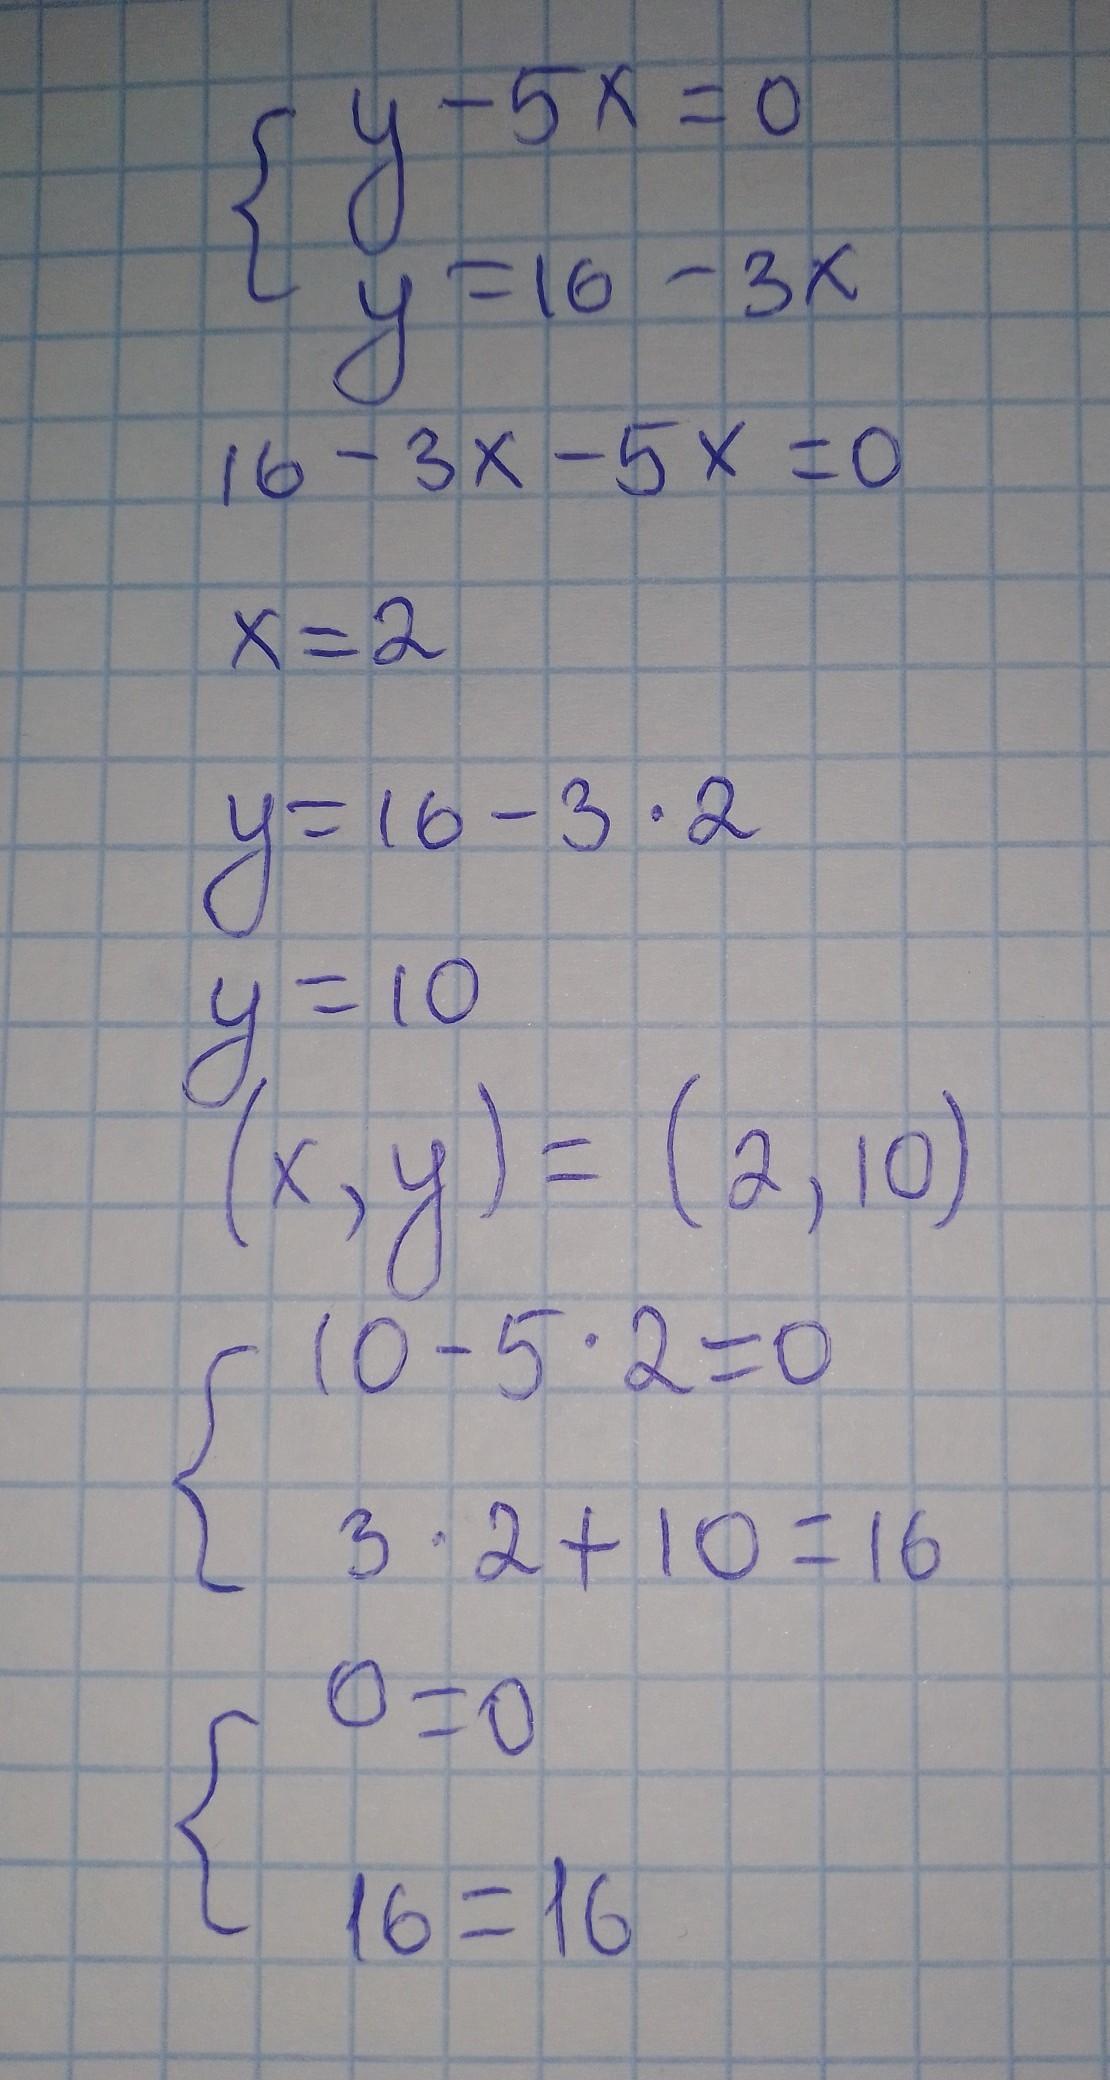 { y - 5x = 0
y = 16 - 3x
16 - 3x - 5x = 0
x = 2
y = 16 - 3 · 2
y = 10
(x, y) = (2, 10)
{ 10 - 5 · 2 = 0
3 · 2 + 10 = 16
{ 0 = 0
16 = 16